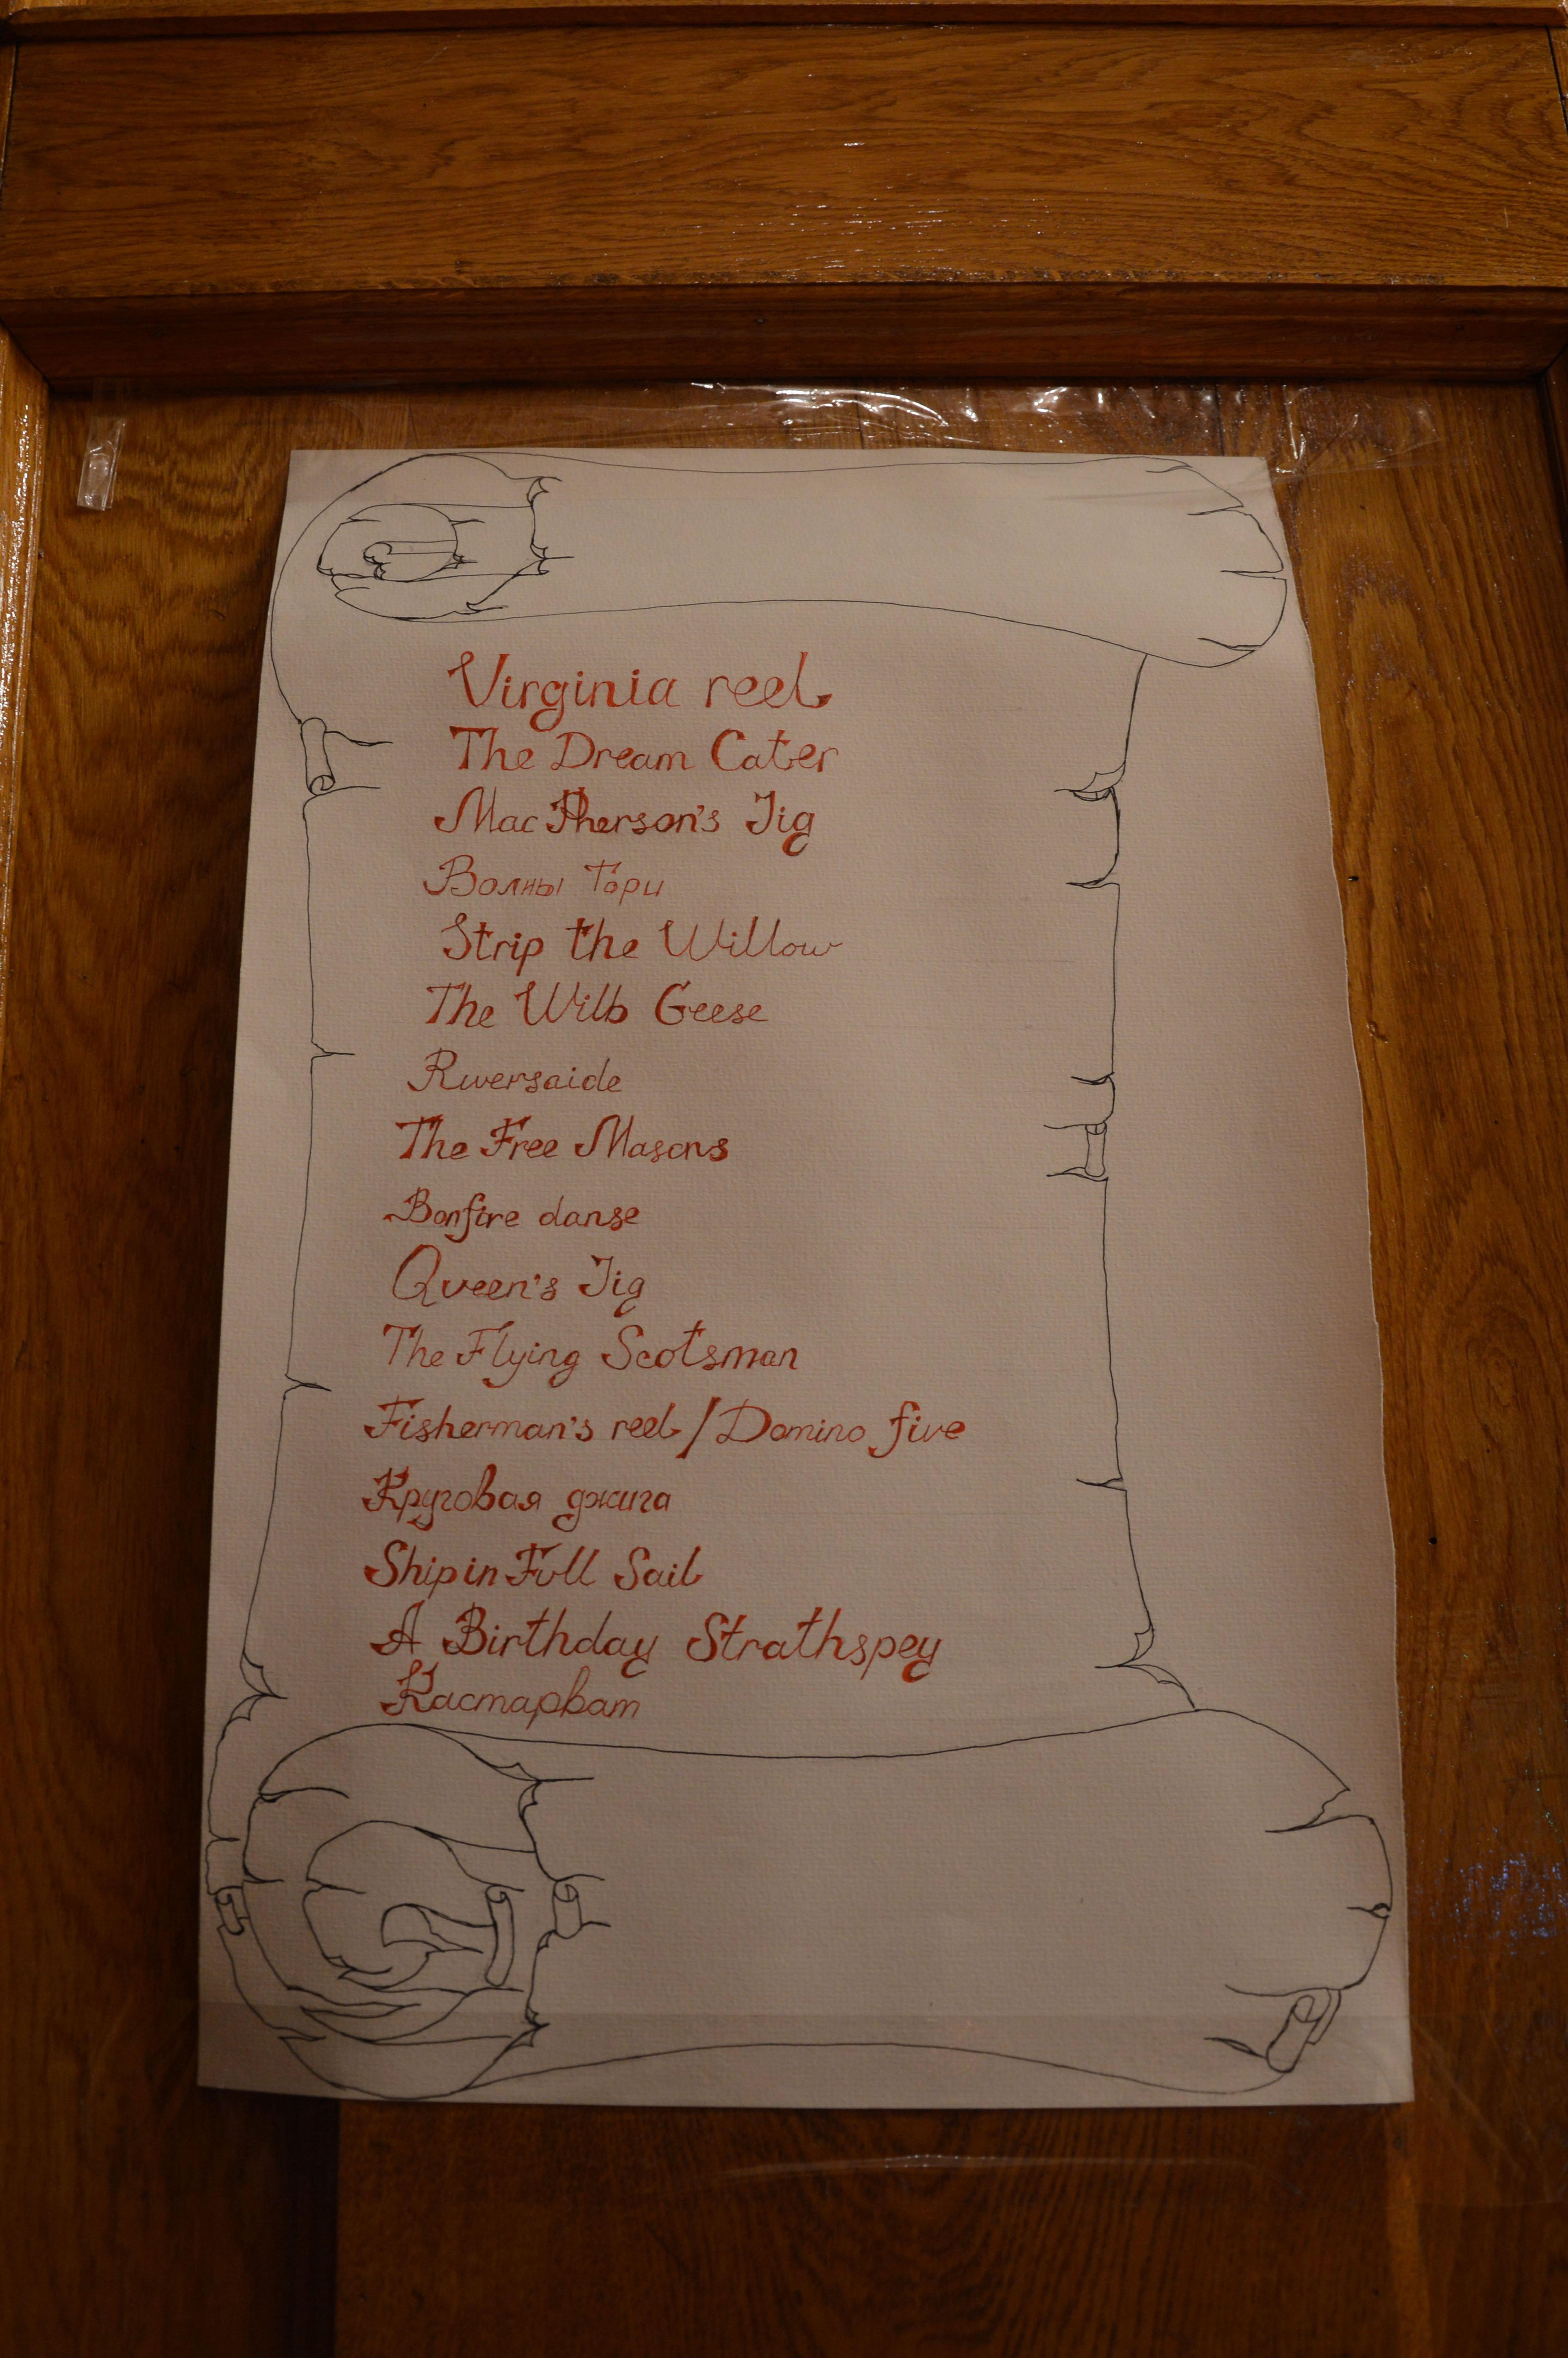 Virginia reel
The Dream Cater
MacPherson's Jig
Волны Тори
Strip the Willow
The Wilb Geese
Riversaide
The Free Masons
Bonfire danse
Queen's Jig
The Flying Scotsman
Fisherman's reel/Domino five
Круговая джига
Ship in Full Sail
A Birthday Strathspey
Кастарват